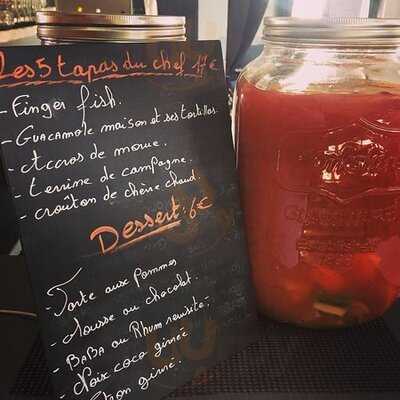 Les 5 tapas du chef 17€
- Finger fish.
- Guacamole maison et ses tortillas.
- Accras de morue.
- terrine de campagne.
- croûton de chèvre chaud.
Dessert: 6€
- Tarte aux Pommes
- Mousse au chocolat.
- BABA au Rhum revisité.
- Noix coco givrée
- citron givré.